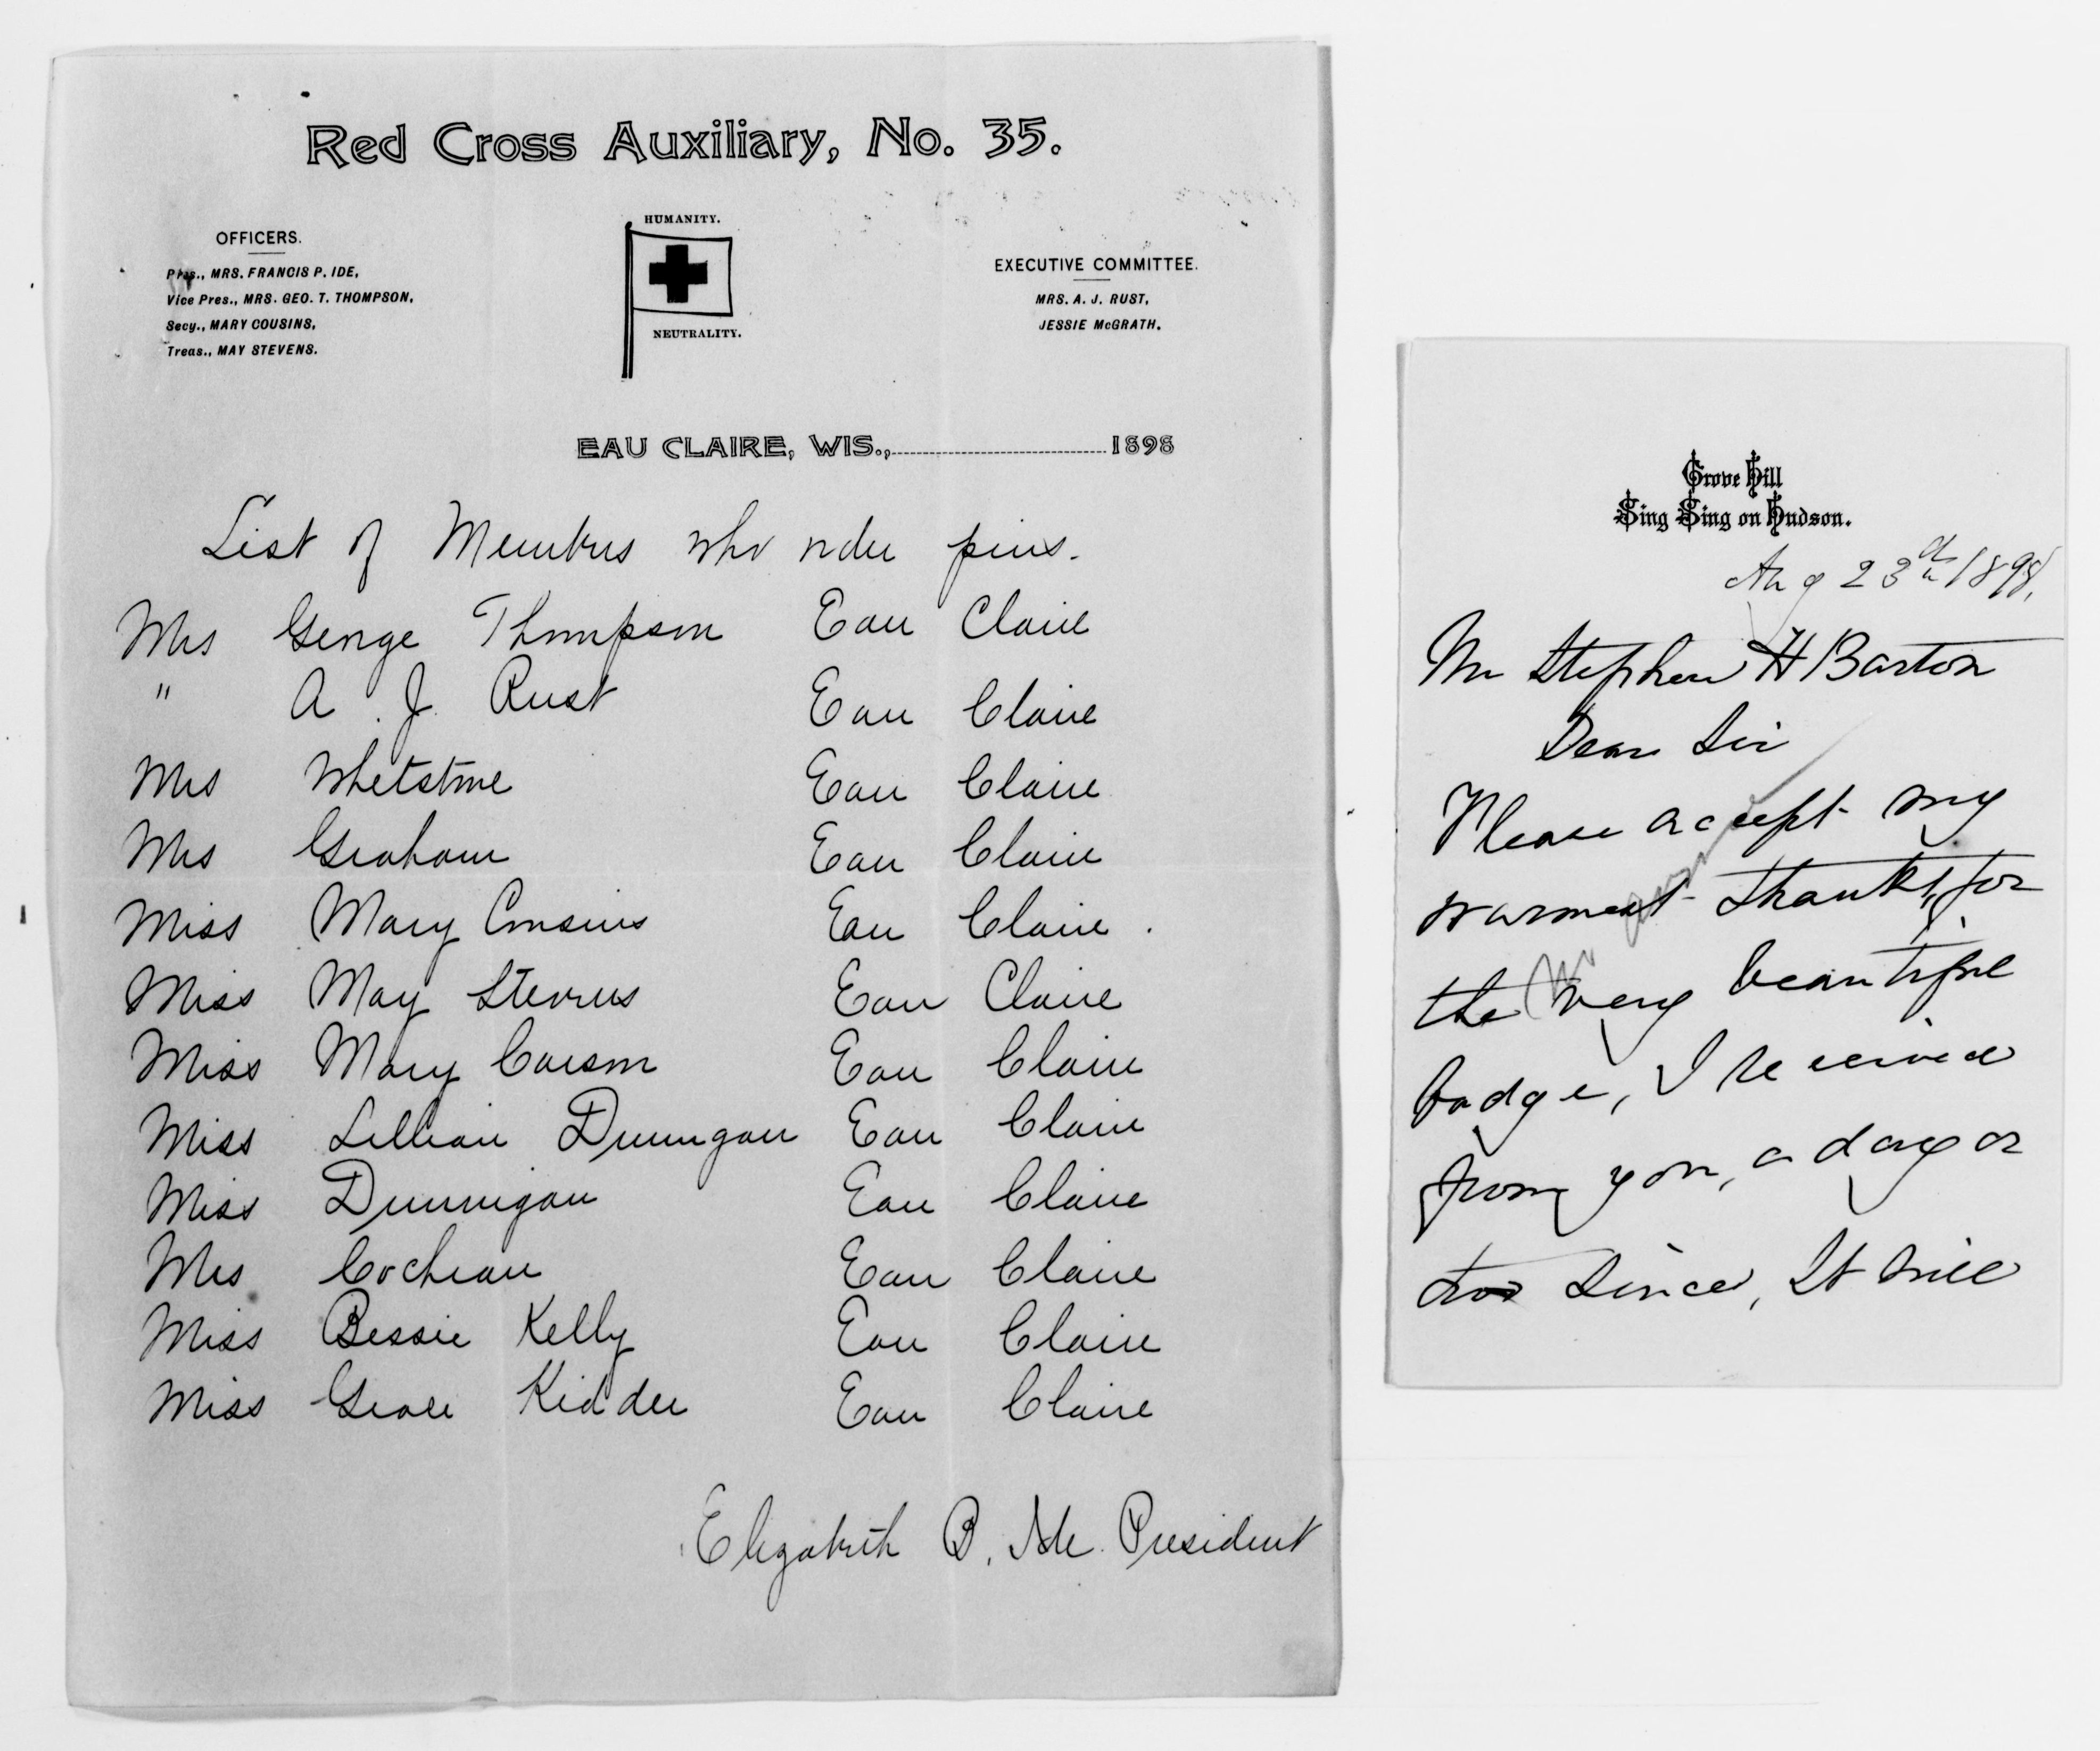 Red Cross Auxiliary, No. 35.
OFFICERS.
Pres., MRS. FRANCIS P. IDE,
Vice Pres., MRS. GEO. T. THOMPSON,
Secy., MARY COUSINS,
Treas., MAY STEVENS.
HUMANITY.
NEUTRALITY.
EXECUTIVE COMMITTEE.
MRS. A. J. RUST,
JESSIE McGRATH.
EAU CLAIRE, WIS., 1898
List of Members who order pins.
Mrs George Thompson Eau Claire
" A. J. Rust Eau Claire
Mrs Whetstone Eau Claire
Mrs Graham Eau Claire
Miss Mary Cousins Eau Claire.
Miss May Stevens Eau Claire
Miss Mary Carson Eau Claire
Miss Lillian Dunnigan Eau Claire
Miss Dunnigan Eau Claire
Mrs Cochran Eau Claire
Miss Bessie Kelly Eau Claire
Miss Grace Kidder Eau Claire
Elizabeth B. Ide. President
Grove Hill
Sing Sing on Hudson.
Aug 23 1898,
Mr Stephen H Barton
Dear Sir
Please accept my
warmest thanks, for
the very beautiful
badge, I received
from you, a day or
two since, It will